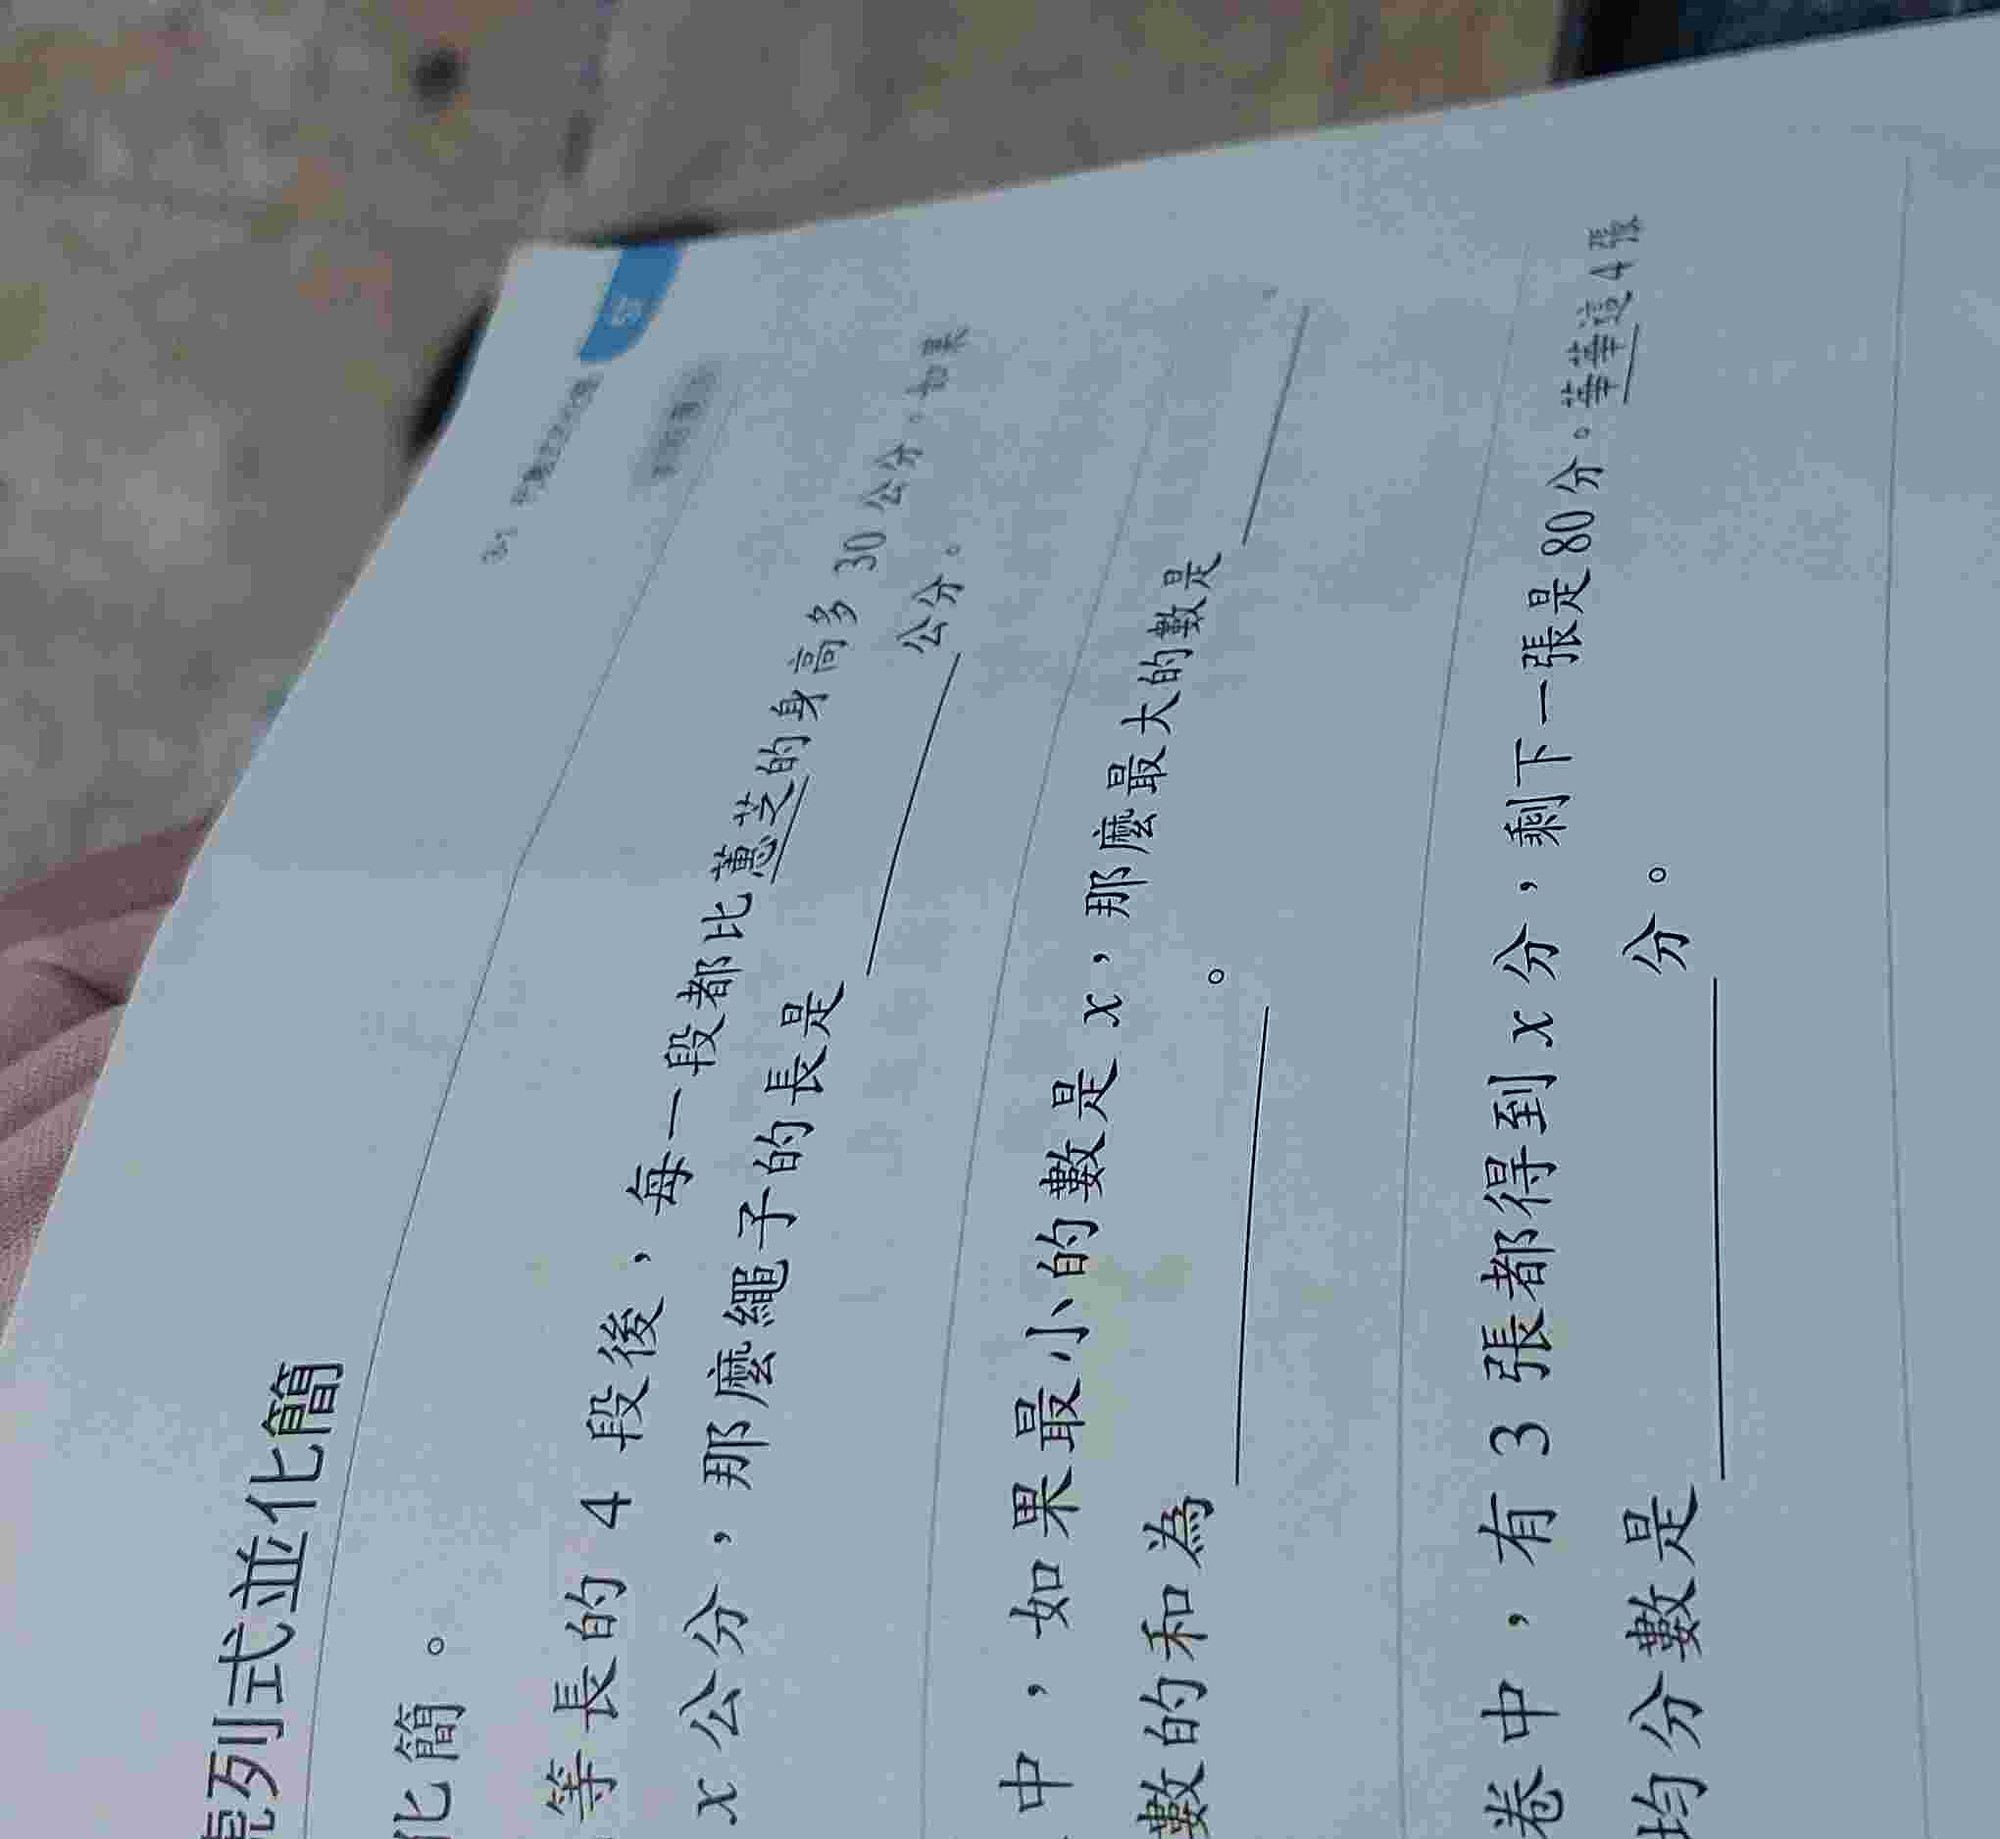 列式並化簡
化簡。
等長的 4 段後，每一段都比蕙芝的身高多 30 公分。如果
x 公分，那麼繩子的長是＿＿＿＿公分。
中，如果最小的數是 x，那麼最大的數是＿＿＿＿，
數的和為＿＿＿＿。
卷中，有 3 張都得到 x 分，剩下一張是 80 分。華華這 4 張
均分數是＿＿＿＿分。